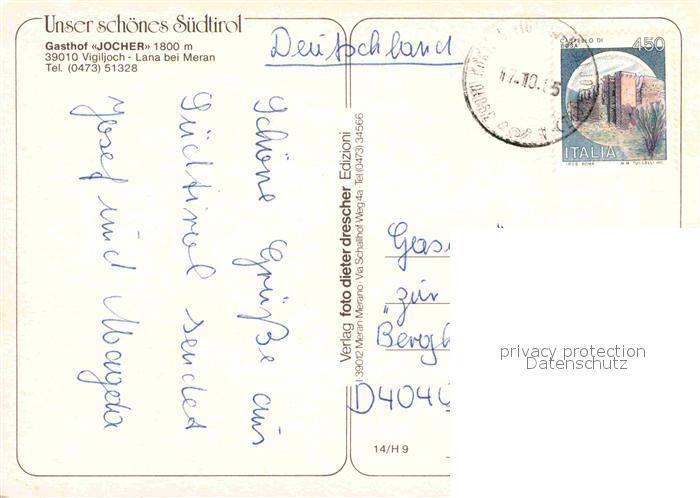 Unser schönes Südtirol
Gasthof «JOCHER» 1800 m
39010 Vigiljoch - Lana bei Meran
Tel. (0473) 51328
Deutschland
CASTELLO DI
BOSA
450
ITALIA
I.P.Z.S. ROMA
17.10.85
Schöne Grüße aus
Südtirol sendet
Josef und Margeta
Verlag foto dieter drescher Edizioni
I 39012 Meran-Merano · Via Schallhof-Weg 4a · Tel (0473) 34566
"zur
Bergh
D4040
14/H 9
privacy protection
Datenschutz